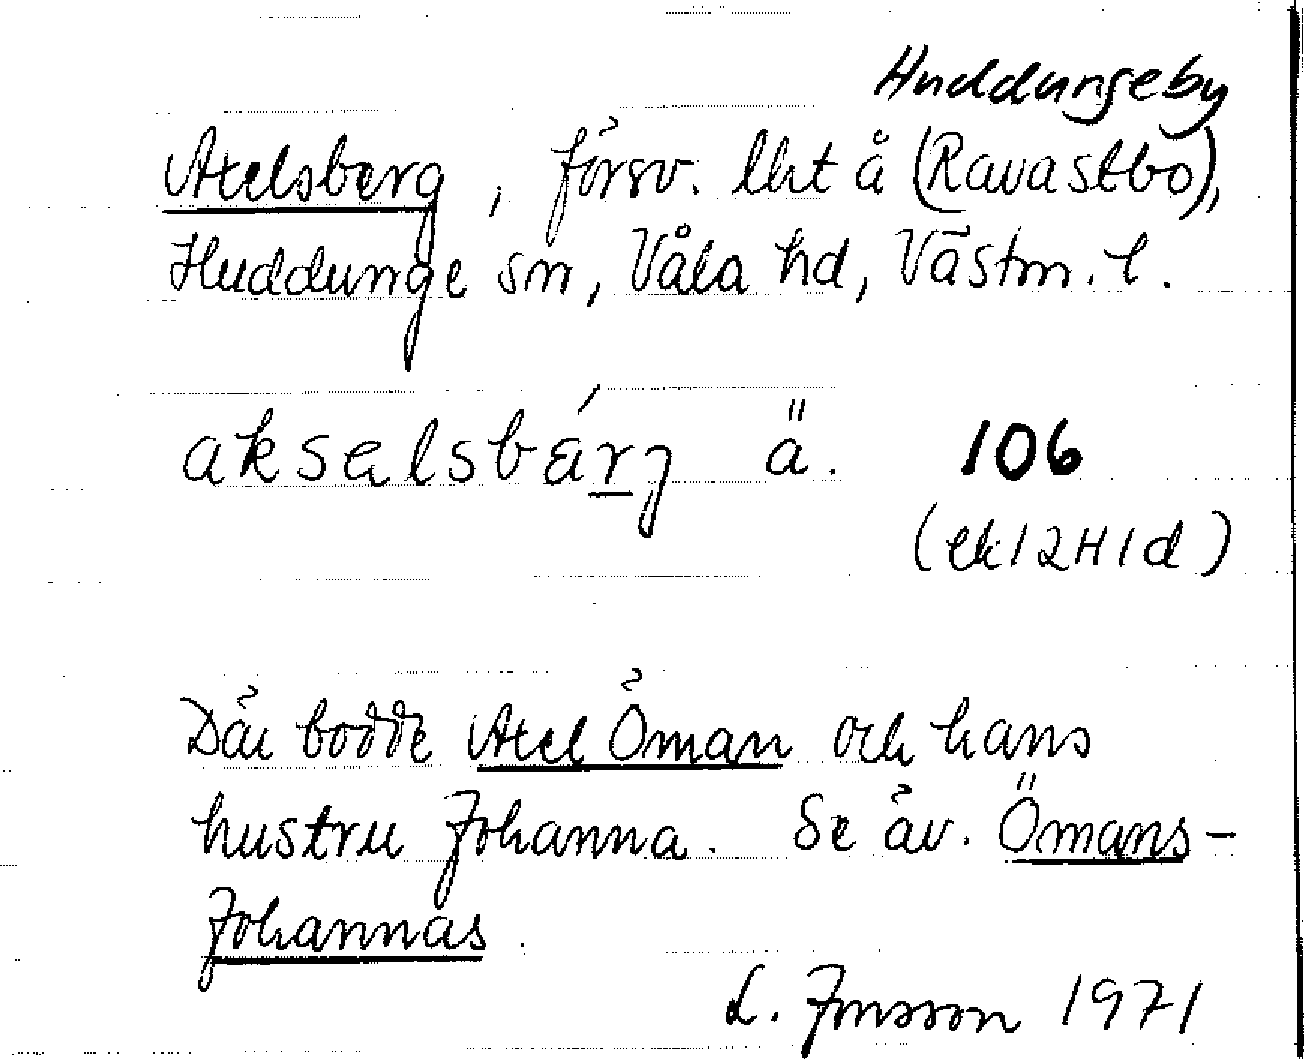 Huddungeby
Axelsberg, försv. lht å (Ravastbo),
Huddunge sn, Våla hd, Västm. l.
akselsbárj ä. 106
(ek 12H1d)
Där bodde Axel Öman och hans
hustru Johanna. Se äv. Ömans-
Johannas.
L. Jonsson 1971